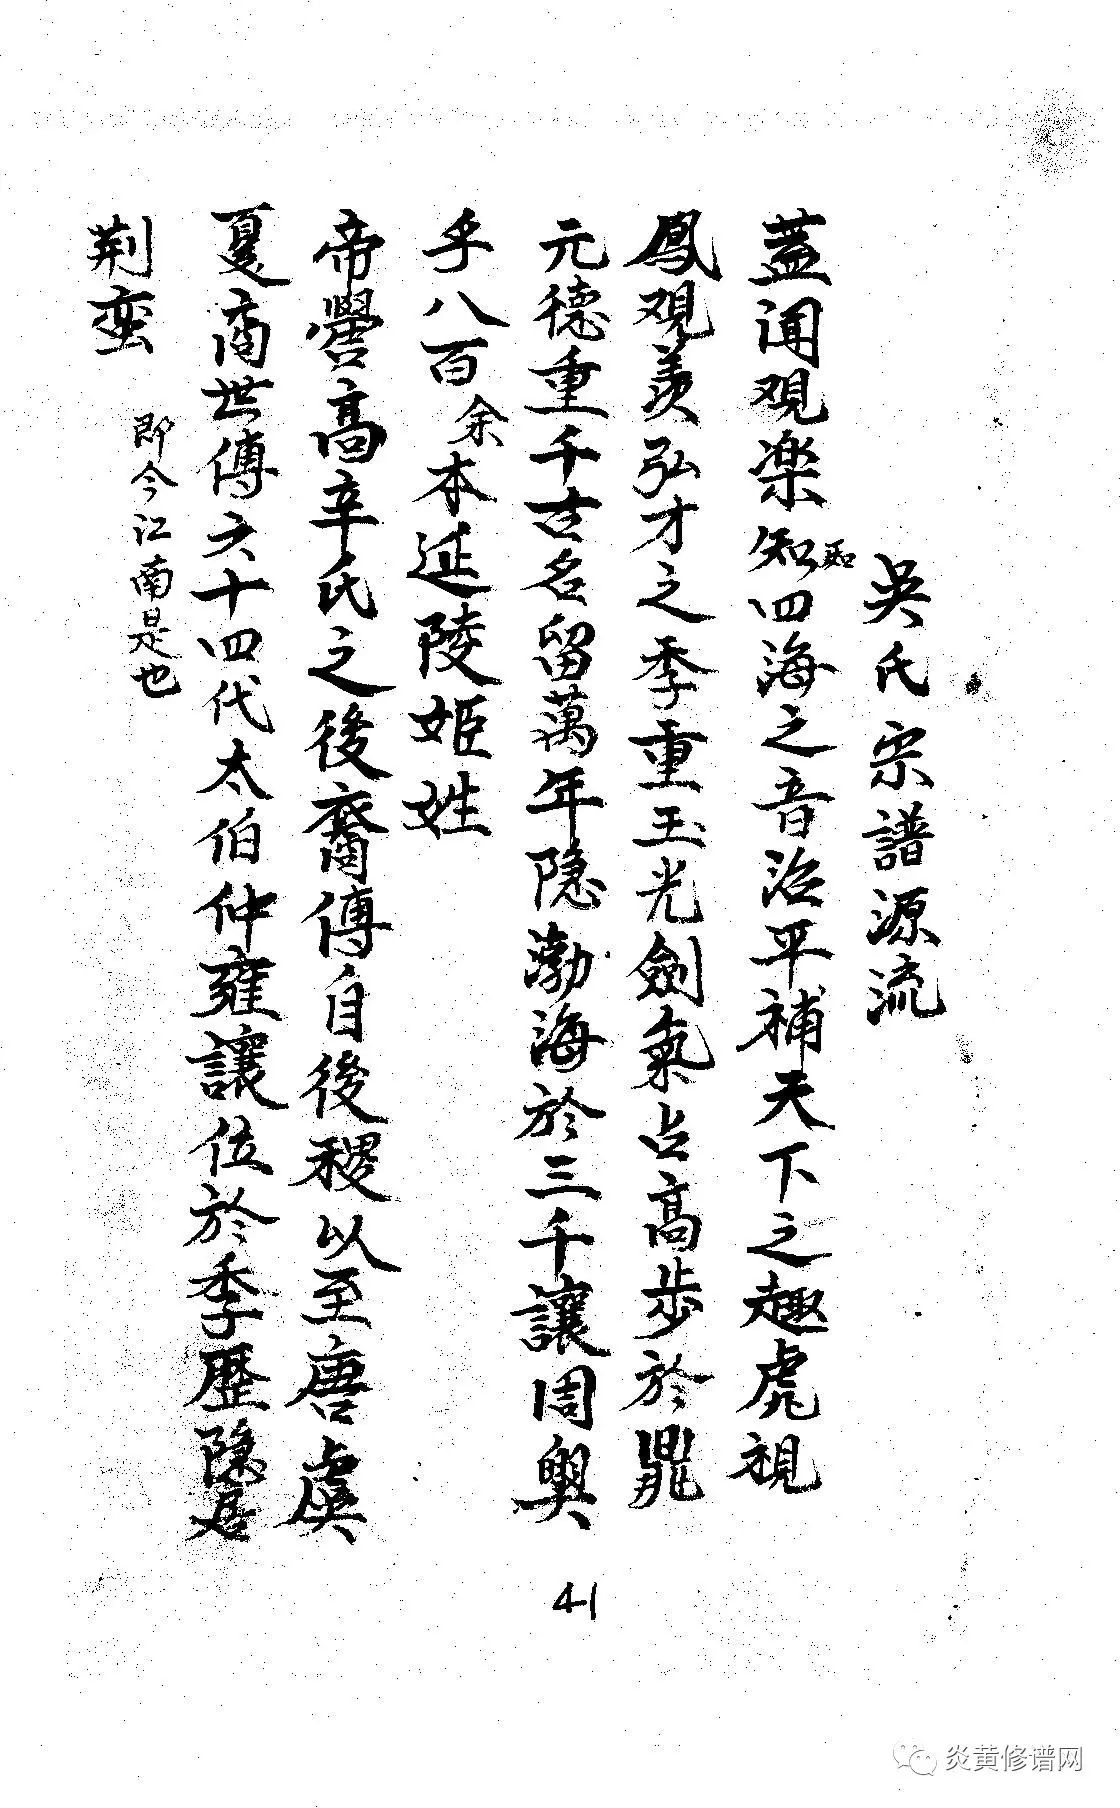 吳氏宗譜源流
蓋闻观楽知和四海之音治平補天下之趣虎視
鳳观羨弘才之季重玉光劍氣占高步於鼎
元德重千古名留萬年隐渤海於三千讓周興
乎八百余本延陵姬姓
帝嚳高辛氏之後裔傳自後稷以至唐虞
夏商世傳六十四代太伯仲雍讓位於季歷隐居
荆蛮 即今江南是也
41
炎黄修谱网